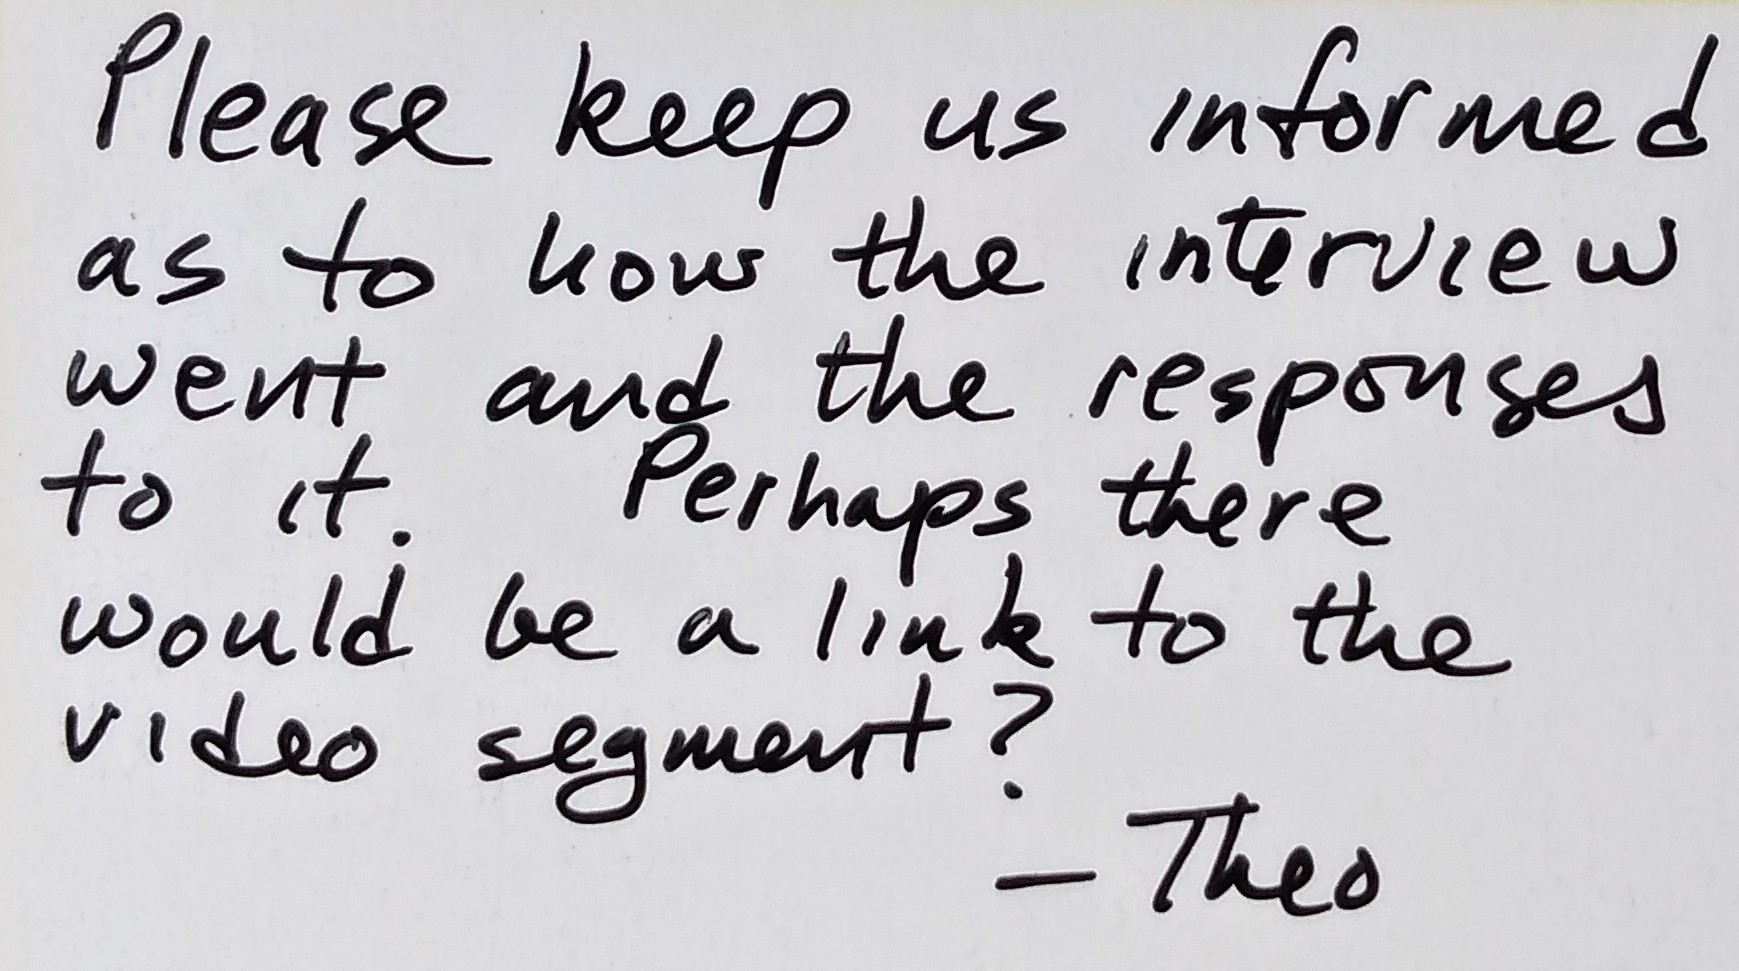 Please keep us informed
as to how the interview
went and the responses
to it. Perhaps there
would be a link to the
video segment?
— Theo